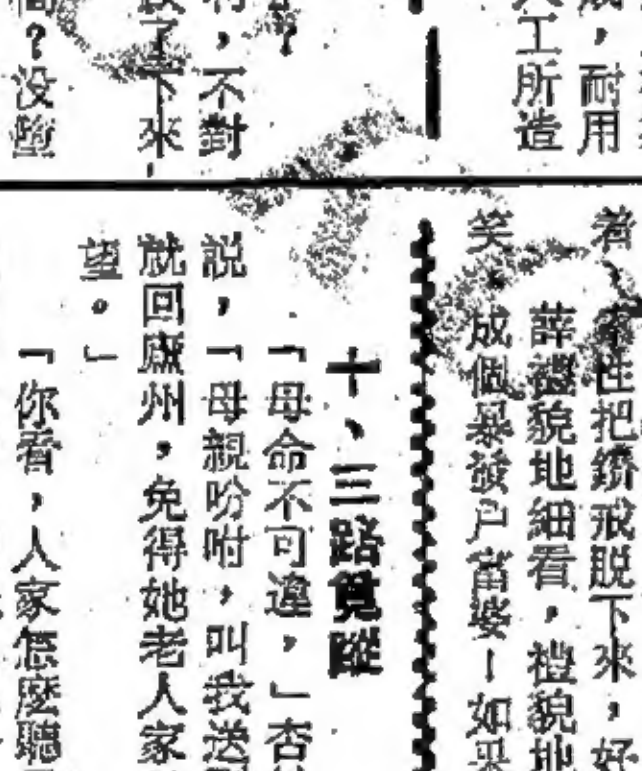 成，耐用
人工所造
，不對
了下來
？没墮
著、索性把鑽戒脱下來，好
薛禮貌地細看，禮貌地
笑，成個暴發户富婆！如果
十、三路覓蹤
「母命不可違，」杏
説，「母親吩咐，叫我送到
就回廬州，免得她老人家
望。」
「你看，人家怎麼聽